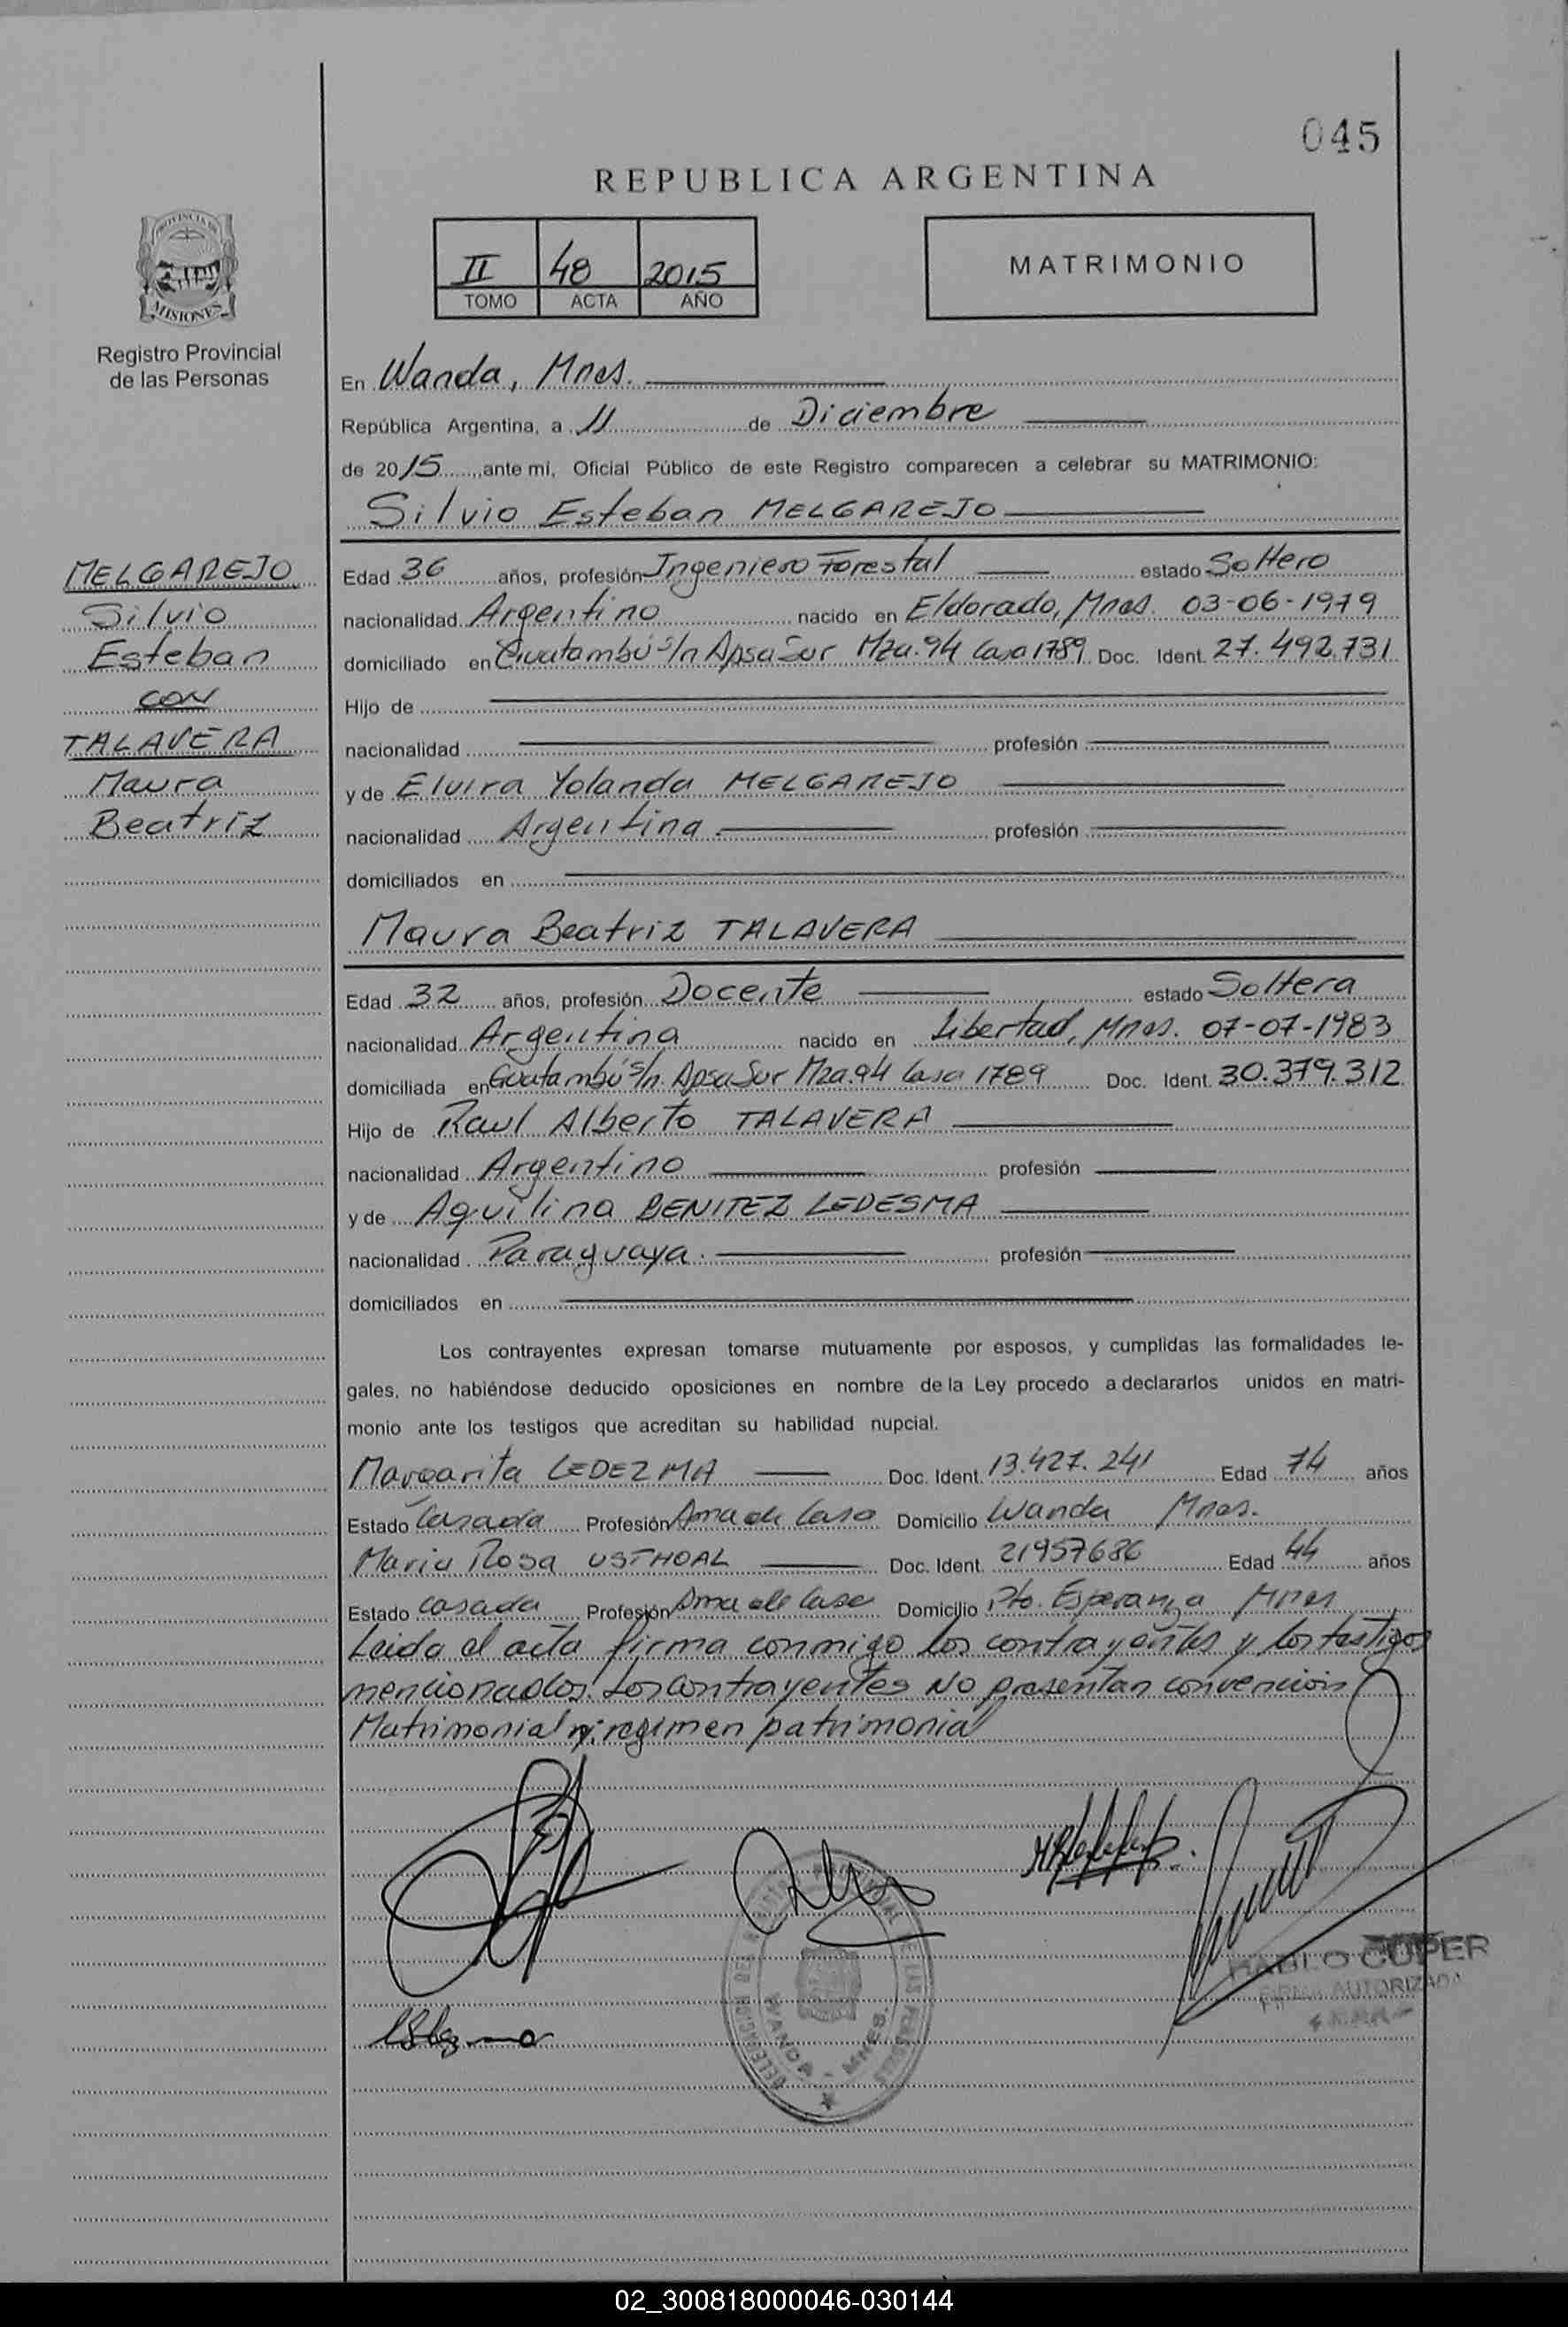 045
REPUBLICA ARGENTINA
PROVINCIA DE
MISIONES
Registro Provincial
de las Personas
II 48 2015
TOMO ACTA AÑO
MATRIMONIO
En Wanda, Mnes.
República Argentina, a 11 de Diciembre
de 2015 ante mi, Oficial Público de este Registro comparecen a celebrar su MATRIMONIO:
Silvio Esteban MELGAREJO
MELGAREJO
Silvio
Esteban
CON
TALAVERA
Maura
Beatriz
Edad 36 años, profesión Ingeniero Forestal estado Soltero
nacionalidad Argentino nacido en Eldorado, Mnes. 03-06-1979
domiciliado en Guatambú s/n Apsa Sur Mza. 94 Casa 1789 Doc. Ident. 27.492.731
Hijo de
nacionalidad profesión
y de Elvira Yolanda MELGAREJO
nacionalidad Argentina profesión
domiciliados en
Maura Beatriz TALAVERA
Edad 32 años, profesión Docente estado Soltera
nacionalidad Argentina nacido en Libertad, Mnes. 07-07-1983
domiciliada en Guatambú s/n. Apsa Sur Mza. 94 Casa 1789 Doc. Ident. 30.379.312
Hijo de Raul Alberto TALAVERA
nacionalidad Argentino profesión
y de Aquilina BENITEZ LEDESMA
nacionalidad Paraguaya. profesión
domiciliados en
Los contrayentes expresan tomarse mutuamente por esposos, y cumplidas las formalidades le-
gales, no habiéndose deducido oposiciones en nombre de la Ley procedo a declararlos unidos en matri-
monio ante los testigos que acreditan su habilidad nupcial.
Margarita LEDEZMA Doc. Ident. 13.427.241 Edad 74 años
Estado Casada Profesión Ama de Casa Domicilio Wanda Mnes.
Maria Rosa USTHOAL Doc. Ident. 21957686 Edad 44 años
Estado Casada Profesión Ama de Casa Domicilio Pto. Esperanza Mnes
Leida el acta firma conmigo los contrayentes y los testigos
mencionados. Los contrayentes No presentan convencion
Matrimonial ni regimen patrimonial
DELEGACION DEL REGISTRO PROVINCIAL DE LAS PERSONAS
WANDA - MNES.
PABLO CUPER
FIRMA AUTORIZADA
02_300818000046-030144